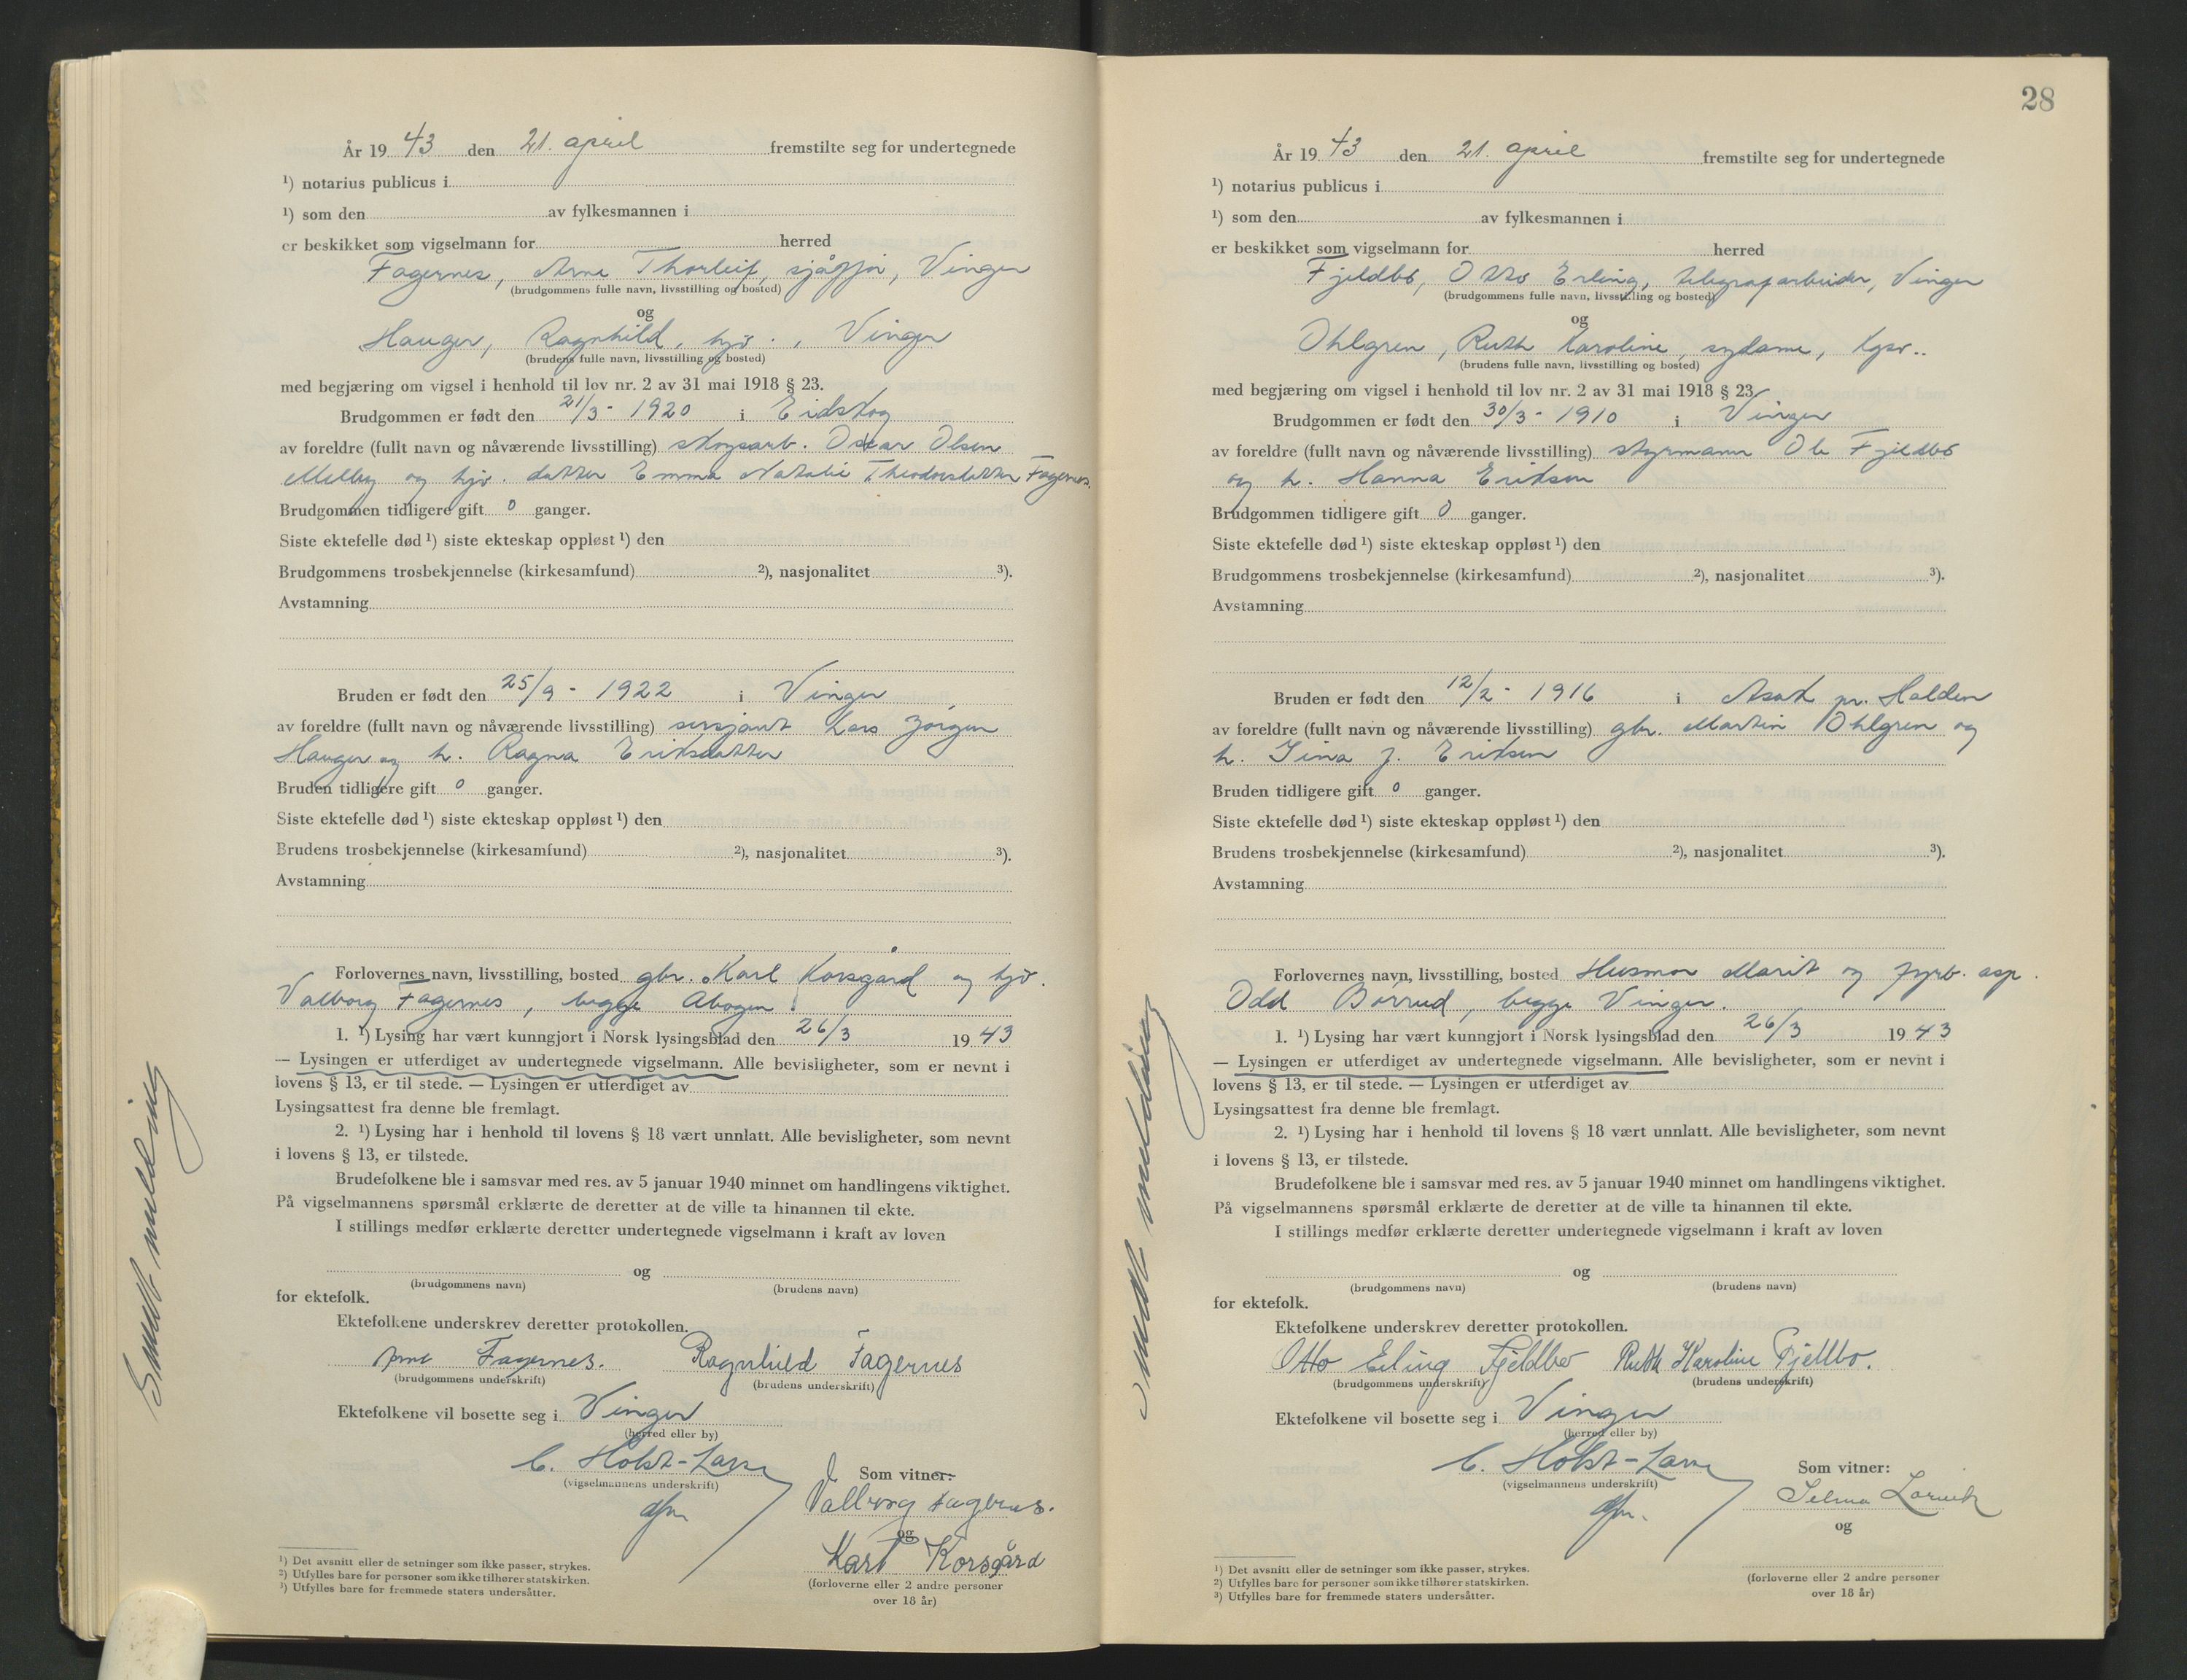 År 19 43 den 21. april fremstilte seg for undertegnede
¹) notarius publicus i
¹) som den av fylkesmannen i
er beskikket som vigselmann for herred
Fagernes, Arne Thorleif, sjåffør, Vinger
(brudgommens fulle navn, livsstilling og bosted)
og
Hauger, Ragnhild, hjv., Vinger
(brudens fulle navn, livsstilling og bosted)
med begjæring om vigsel i henhold til lov nr. 2 av 31 mai 1918 § 23.
Brudgommen er født den 21/3 - 1920 i Eidskog
av foreldre (fullt navn og nåværende livsstilling) skogsarb. Oskar Olsen
Melby og hjv. datter Emma Natalie Theodorsdatter Fagernes.
Brudgommen tidligere gift 0 ganger.
Siste ektefelle død ¹) siste ekteskap oppløst ¹) den
Brudgommens trosbekjennelse (kirkesamfund) ²), nasjonalitet ³).
Avstamning
Bruden er født den 25/9 - 1922 i Vinger
av foreldre (fullt navn og nåværende livsstilling) sersjant Lars Jørgen
Hauger og h. Ragna Eriksdatter
Bruden tidligere gift 0 ganger.
Siste ektefelle død ¹) siste ekteskap oppløst ¹) den
Brudens trosbekjennelse (kirkesamfund) ²), nasjonalitet ³).
Avstamning
Forlovernes navn, livsstilling, bosted gbr. Karl Korsgård og hjv.
Valborg Fagernes, begge Åbogen.
1. ¹) Lysing har vært kunngjort i Norsk lysingsblad den 26/3 19 43
— Lysingen er utferdiget av undertegnede vigselmann. Alle bevisligheter, som er nevnt i
lovens § 13, er til stede. — Lysingen er utferdiget av
Lysingsattest fra denne ble fremlagt.
2. ¹) Lysing har i henhold til lovens § 18 vært unnlatt. Alle bevisligheter, som nevnt
i lovens § 13, er tilstede.
Brudefolkene ble i samsvar med res. av 5 januar 1940 minnet om handlingens viktighet.
På vigselmannens spørsmål erklærte de deretter at de ville ta hinannen til ekte.
I stillings medfør erklærte deretter undertegnede vigselmann i kraft av loven
og
(brudgommens navn) (brudens navn)
for ektefolk.
Ektefolkene underskrev deretter protokollen.
Arne Fagernes. Ragnhild Fagernes
(brudgommens underskrift) (brudens underskrift)
Ektefolkene vil bosette seg i Vinger
(herred eller by)
C. Holst-Larsen
(vigselmannens underskrift)
Som vitner:
Valborg Fagernes.
og
Karl Korsgård
(forloverne eller 2 andre personer
over 18 år)
¹) Det avsnitt eller de setninger som ikke passer, strykes.
²) Utfylles bare for personer som ikke tilhører statskirken.
³) Utfylles bare for fremmede staters undersåtter.
Sendt melding
28
År 19 43 den 21. april fremstilte seg for undertegnede
¹) notarius publicus i
¹) som den av fylkesmannen i
er beskikket som vigselmann for herred
Fjeldbo, Otto Erling, telegrafarbeider, Vinger
(brudgommens fulle navn, livsstilling og bosted)
og
Ohlgren, Ruth Karoline, sydame, Kgsv..
(brudens fulle navn, livsstilling og bosted)
med begjæring om vigsel i henhold til lov nr. 2 av 31 mai 1918 § 23
Brudgommen er født den 30/3 - 1910 i Vinger
av foreldre (fullt navn og nåværende livsstilling) styrmann Ole Fjeldbo
og h. Hanna Eriksen
Brudgommen tidligere gift 0 ganger.
Siste ektefelle død ¹) siste ekteskap oppløst ¹) den
Brudgommens trosbekjennelse (kirkesamfund) ²), nasjonalitet ³).
Avstamning
Bruden er født den 12/2 - 1916 i Asak pr. Halden
av foreldre (fullt navn og nåværende livsstilling) gbr. Martin Ohlgren og
h. Jina J. Eriksen
Bruden tidligere gift 0 ganger.
Siste ektefelle død ¹) siste ekteskap oppløst ¹) den
Brudens trosbekjennelse (kirkesamfund) ²), nasjonalitet ³).
Avstamning
Forlovernes navn, livsstilling, bosted Husmor Marit og fyrb. asp.
Odd Børrud, begge Vinger.
1. ¹) Lysing har vært kunngjort i Norsk lysingsblad den 26/3 19 43
— Lysingen er utferdiget av undertegnede vigselmann. Alle bevisligheter, som er nevnt i
lovens § 13, er til stede. — Lysingen er utferdiget av
Lysingsattest fra denne ble fremlagt.
2. ¹) Lysing har i henhold til lovens § 18 vært unnlatt. Alle bevisligheter, som nevnt
i lovens § 13, er tilstede.
Brudefolkene ble i samsvar med res. av 5 januar 1940 minnet om handlingens viktighet.
På vigselmannens spørsmål erklærte de deretter at de ville ta hinannen til ekte.
I stillings medfør erklærte deretter undertegnede vigselmann i kraft av loven
og
(brudgommens navn) (brudens navn)
for ektefolk.
Ektefolkene underskrev deretter protokollen.
Otto Erling Fjeldbo Ruth Karoline Fjeldbo.
(brudgommens underskrift) (brudens underskrift)
Ektefolkene vil bosette seg i Vinger
(herred eller by)
C. Holst-Larsen
(vigselmannens underskrift)
Som vitner:
Selma
og
(forloverne eller 2 andre personer
over 18 år)
¹) Det avsnitt eller de setninger som ikke passer, strykes.
²) Utfylles bare for personer som ikke tilhører statskirken.
³) Utfylles bare for fremmede staters undersåtter.
Sendt melding